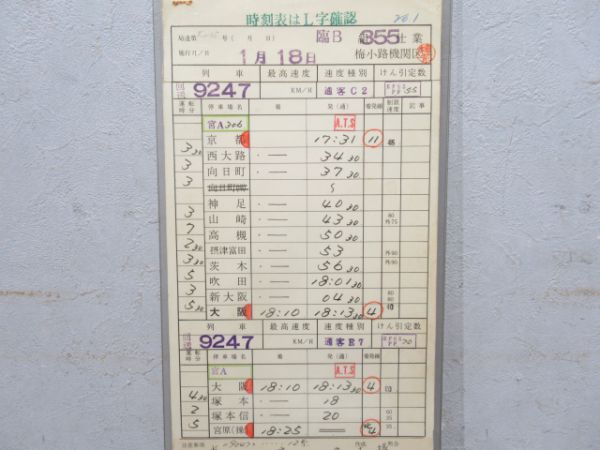 時刻表はL字確認
20.1
臨B 855 士業
施行月/日 1月18日 梅小路機関区
列車 最高速度 速度種別 けん引定数
回送 9247 KM/H 通客C2 55
運転時分 停車場名 着 発(通) 着発線 制限速度 記事
宮A306 A.T.S
京都 17:31 11
3 30 西大路 · — 34 30
3 向日町 · — 37 30
3 神足 · — 40 30
3 山崎 · — 43 30
7 高槻 · — 50 30
2 30 摂津富田 · — 53
3 30 茨木 · — 56 30
5 吹田 · — 18:01 30
3 新大阪 · — 04 30
5 30 大阪 18:10 18:13 30 4
列車 最高速度 速度種別 けん引定数
回送 9247 KM/H 通客E7 20
運転時分 停車場名 着 発(通) 着発線 制限速度 記事
宮A A.T.S
大阪 18:10 18:13 30 4
4 30 塚本 · — 18
2 塚本信 · — 20
5 宮原(操) 18:25 = 4
注意事項